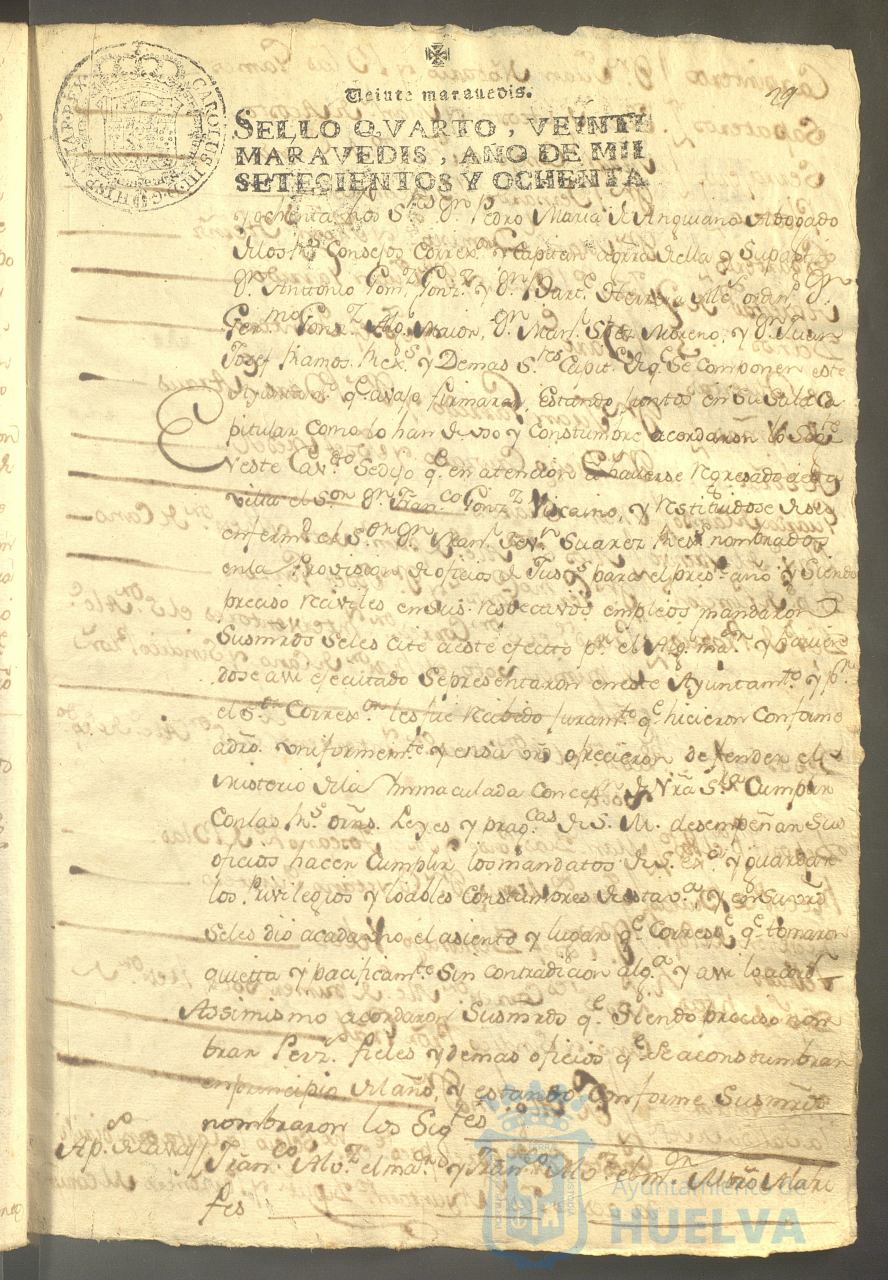 29
CAROLUS III D. G. HISPANIAR. REX
Veinte maravedis.
SELLO QVARTO, VEINTE
MARAVEDIS, AÑO DE MIL
SETECIENTOS Y OCHENTA
y ocho los S.res Dn. Pedro Maria de Anguiano Abogado
de los R.s Consejos, Correx.r y Capitan aGrra de ella y Supartdo
Dn. Antonio Gonz.z y Dn. Bart.e Herrera Alc.s ordin.s Dn.
Ger.mo Gonz.z Alg.l Maior, Dn. Man.l Moreno, y Dn. Juan
Josef Ramos, Rex.s y Demas S.res Capit.s de q.e Se Componen este
Ayuntto. q.e avajo firmaran, Estando Juntos en su Sala Ca
pitular como lo han de uso y Constumbre acordaron lo Sigte
En este Cav.do Se dijo q.e en atencion a haverse regresado a esta
villa el S.or Dn. Fran.co Gonz.z Viscaino, y restituidose de su
enfermd. el S.or Dn. Man.l Suarez Rex.s nombrados
en la Provision de oficios de Jus.a para el pres.te año y Siendo
preciso recivirles en sus respectivos empleos mandaron
Susmrds Seles cite a este efectto p.r el Alg.l ma.or y havien
dose assi ejecutado Sepresentaron en este Ayuntam.to y p.r
el S.or Correx.or les fue recibido juram.to q.e hicieron Conforme
adro. uniformem.te y en su vrd ofrecieron defender el
Misterio de la Immaculada Concep.n de Nra S.ra Cumplir
Con las R.s orns. Leyes y prag.cas de S. M. desempeñar Sus
oficios hacer Cumplir los mandatos de S. Ex.a y guardar
los Privilegios y loables Constumbres de esta v.a, y en Su vrd
Seles dio acada uno el asiento y lugar q.e Corresp.e q.e tomaron
quietta y pacificam.te Sin contradicion alg.a y assi lo acord.n
Assimismo acordaron Susmrds q.e Siendo preciso nom
brar Fieles y demas oficios q.e Se aconstumbran
en principio del año, y estando Conforme Susmrds
nombraron los Sig.tes
Fran.co Alv.z el ma.or y Fran.co Alv.z el m.r Mro Alari
fes
Ayuntamiento de
HUELVA